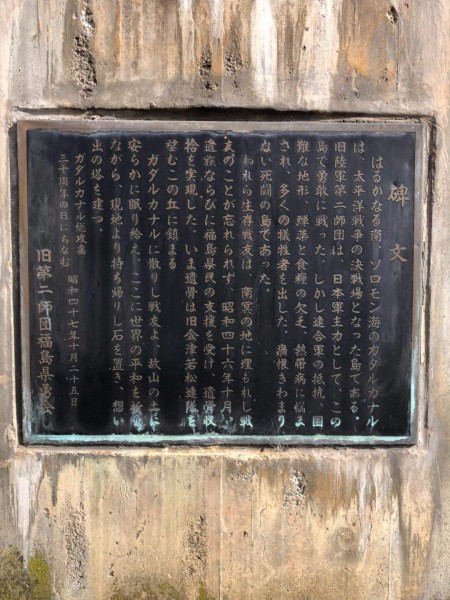 碑文
はるかなる南、ソロモン海のガダルカナル
は、太平洋戦争の決戦場となった島である。
旧陸軍第二師団は、日本軍主力として、この
島で勇敢に戦った。しかし連合軍の抵抗、困
難な地形、弾薬と食糧の欠乏、熱帯病に悩ま
され、多くの犠牲者を出した。痛恨きわまり
ない死闘の島であった。
われら生存戦友は、南冥の地に埋もれし戦
友のことが忘れられず、昭和四十六年十月、
遺族ならびに福島県民の支援を受け、遺骨収
拾を実現した。いま遺骨は旧会津若松連隊を
望むこの丘に鎮まる
ガダルカナルに散りし戦友よ、故山の土に
安らかに眠り給え。ここに世界の平和を祈
ながら、現地より持ち帰りし石を置き、想い
出の塔を建つ。
ガダルカナル総攻撃
三十周年の日にちなむ 昭和四十七年十月二十五日
旧第二師団福島県勇会